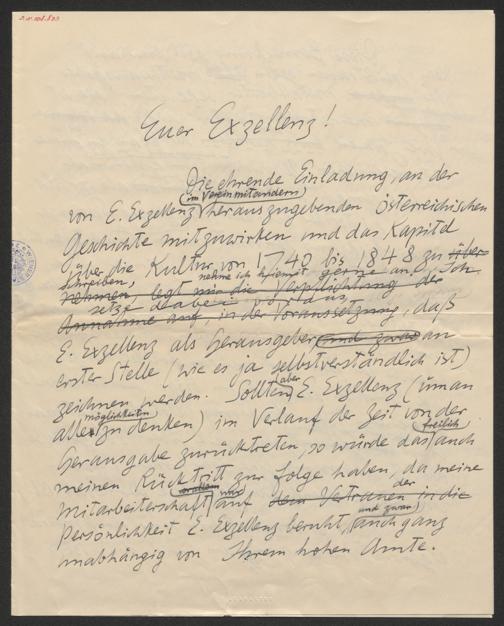 Euer Exzellenz!
Die ehrende Einladung, an der
(im Verein mit andern)
von E. Exzellenz herauszugebenden österreichischen
Geschichte mitzuwirken und das Kapitel
über die Kultur von 1740 bis 1848 zu über-
schreiben, nehme ich hiemit gerne an. Ich
nehmen, legt mir die Verpflichtung der
setze dabei voraus,
Annahme auf, in der Voraussetzung, daß
E. Exzellenz als Herausgeber und zwar an
erster Stelle (wie es ja selbstverständlich ist)
zeichnen werden. Sollten aber E. Exzellenz (um an
möglichkeiten
alle zu denken) im Verlauf der Zeit von der
freilich
Herausgabe zurücktreten, so würde das auch
meinen Rücktritt zur Folge haben, da meine
nur der
Mitarbeiterschaft auf dem Vertrauen in die
und zwar
Persönlichkeit E. Exzellenz beruht, auch ganz
unabhängig von Ihrem hohen Amte.